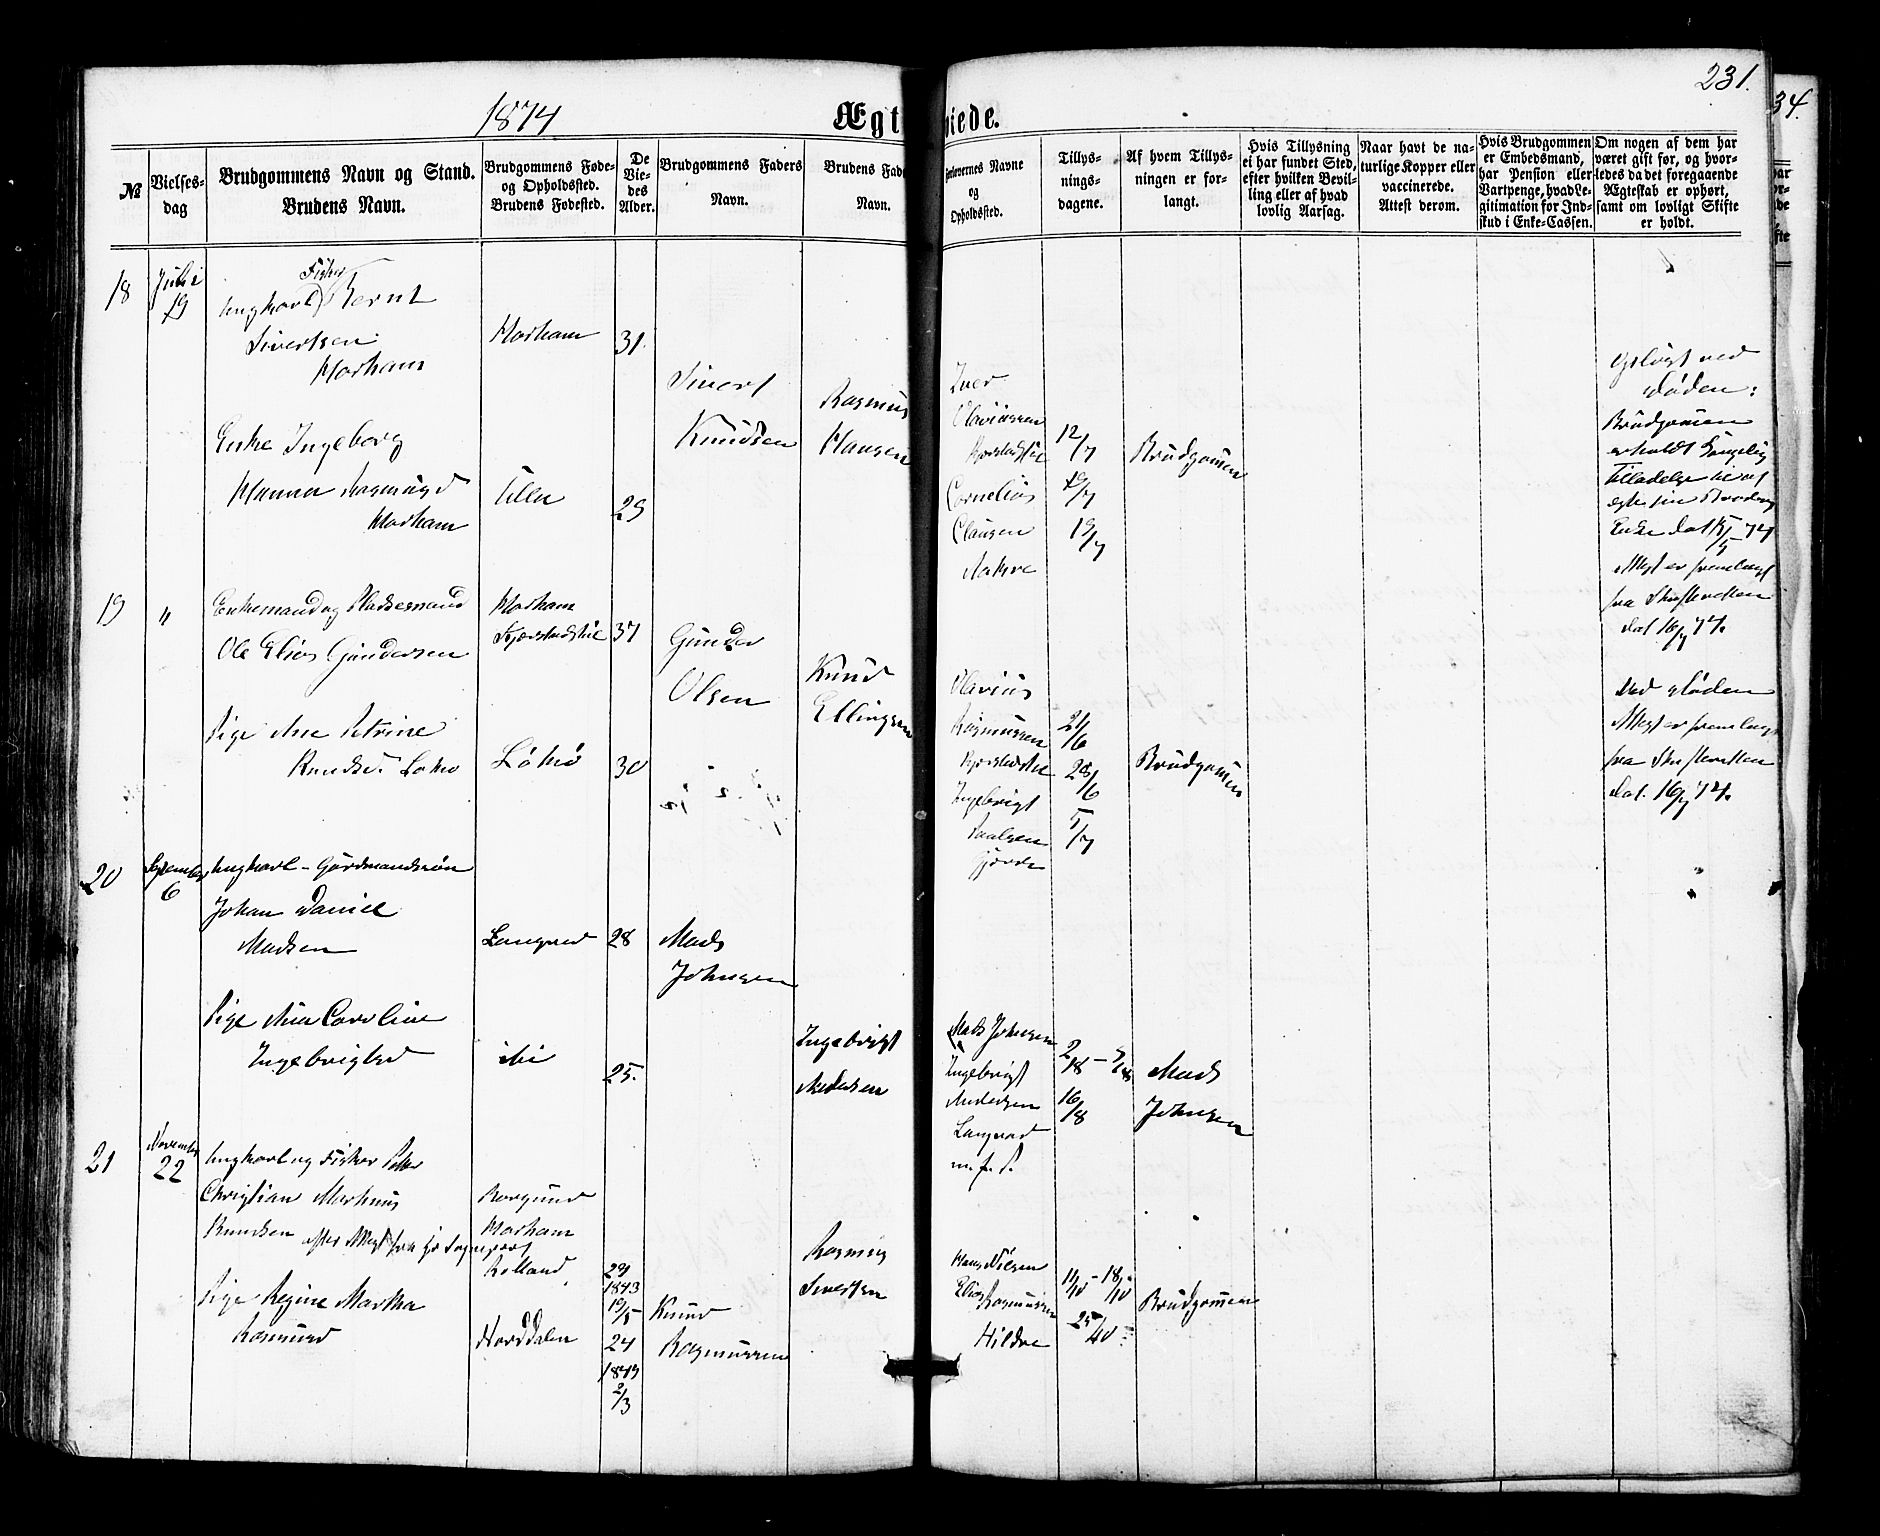 231.
34.
1874
Ægt
viede.
№
Vielses-
dag
Brudgommens Navn og Stand.
Brudens Navn.
Brudgommens Føde-
og Opholdssted.
Brudens Fødested.
De
Vie-
des
Alder.
Brudgommens Faders
Navn.
Brudens Fade
Navn.
Forlovernes Navne
og
Opholdssted.
Tillys-
nings-
dagene.
Af hvem Tillys-
ningen er for-
langt.
Hvis Tillysning
ei har fundet Sted,
efter hvilken Bevil-
ling eller af hvad
lovlig Aarsag.
Naar havt de na-
turlige Kopper eller
vaccinerede.
Attest derom.
Hvis Brudgommen
er Embedsmand,
har Pension eller
Vartpenge, hvad Le-
gitimation for Ind-
skud i Enke-Cassen.
Om nogen af dem har
været gift før, og hvor-
ledes da det foregaaende
Ægteskab er ophørt,
samt om lovligt Skifte
er holdt.
18
Juli
19
Fisker
Ungkarl Bernt
Sivertsen
Harham
Harham
31.
Enke Ingeborg
Hanna Rasmusd
Harham
Ulla
29
Sivert
Knudsen
Rasmus
Hansen
Iver
Olaviussen
Kjerstadstie
Cornelius
Clausen
Aakre
12/7
19/7
19/7
Brudgomen
Opløst ved
Døden:
Brudgomen
erholdt Kongelig
Tilladelse til at
ægte sin Broders
Enke dat /5 74
Attest er fremlagt
fra Skifteretten
dat 16/7 74.
19
"
Enkemand og Pladsemand
Ole Elias Gundersen
Harham
Kjerstadstie
37
Pige Ane Petrine
Knudsd. Løkø
Løkø
30
Gunder
Olsen
Knud
Ellingsen
Olavius
Rasmussen
Kjerstadstie
Ingebrigt
Paalsen
Gjørde
21/6
28/6
5/7
Brudgomen
Ved døden
Attest er fremlagt
fra Skifteretten
dat. 16/7 74.
20
September
6
Ungkarl - Gårdmandssøn
Johan Daniel
Madsen
Longvad
28
Pige Ane Caroline
Ingebrigtsd
ibi
25.
Mads
Johnsen
Ingebrigt
Andersen
Mads Johnsen
Ingebrigt
Andersen
Longvad
m. f. P.
2/8 - 9/8
16/8
Mads
Johnsen
"
21
November
22
Ungkarl og Fisker Peter
Christian Markus
Knudsen efter Attest fra hr Sognepræst
Borgund
Harham
Rolland
29
1843
19/5
Pige Regine Martha
Rasmusd
Norddalen
24
1849
2/3
Knud
Rasmussen
Rasmus
Sivertsen
Hans Nilsen
Elias Rasmussen
Hildre
11/10 - 18/10
25/10.
Brudgomen